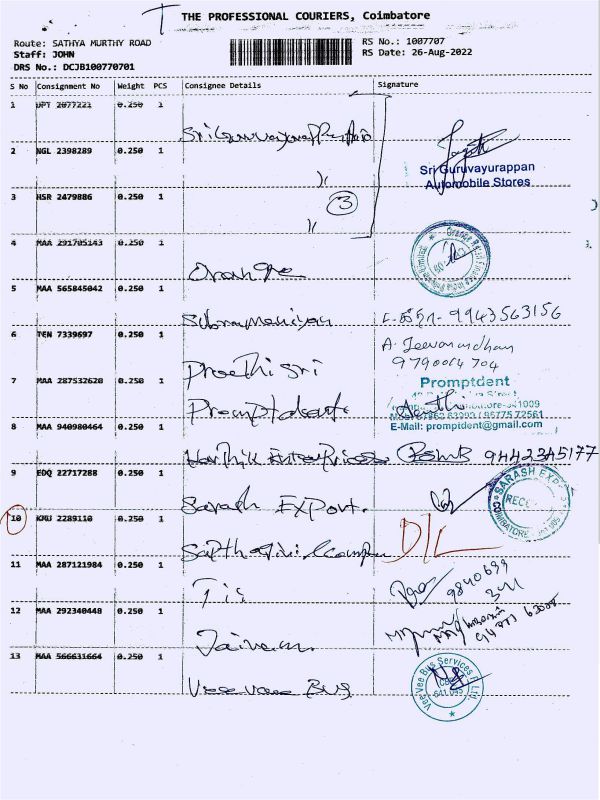 THE PROFESSIONAL COURIERS, Coimbatore
Route: SATHYA MURTHY ROAD
Staff: JOHN
DRS No.: DCJB100770701
RS No.: 1007707
RS Date: 26-Aug-2022
S No Consignment No Weight PCS Consignee Details Signature
1 DPT 2077221 0.250 1
Sri Guruvayurappan
2 NGL 2398289 0.250 1
Sri Guruvayurappan
Automobile Stores
3 HSR 2479886 0.250 1
3
4 MAA 291705143 0.250 1
Orange
5 MAA 565845042 0.250 1
Subramaniyan 9943563156
6 TEN 7339697 0.250 1
A. Jeevanandhan
9790064704
Preethi Sri
7 MAA 287532620 0.250 1
Promptdent
Promptdent
8 MAA 940980464 0.250 1
E-Mail: promptdent@gmail.com
Karthik Enterprises 9442345177
9 EDQ 22717288 0.250 1
Sarash Export.
SARASH EXPORT
COIMBATORE
10 KMU 2289110 0.250 1
D/L
11 MAA 287121984 0.250 1
Tii
9840699
341
12 MAA 292340448 0.250 1
Jairam
13 MAA 566631664 0.250 1
Vee Vee Bus
Vee Vee Bus Services P Ltd.